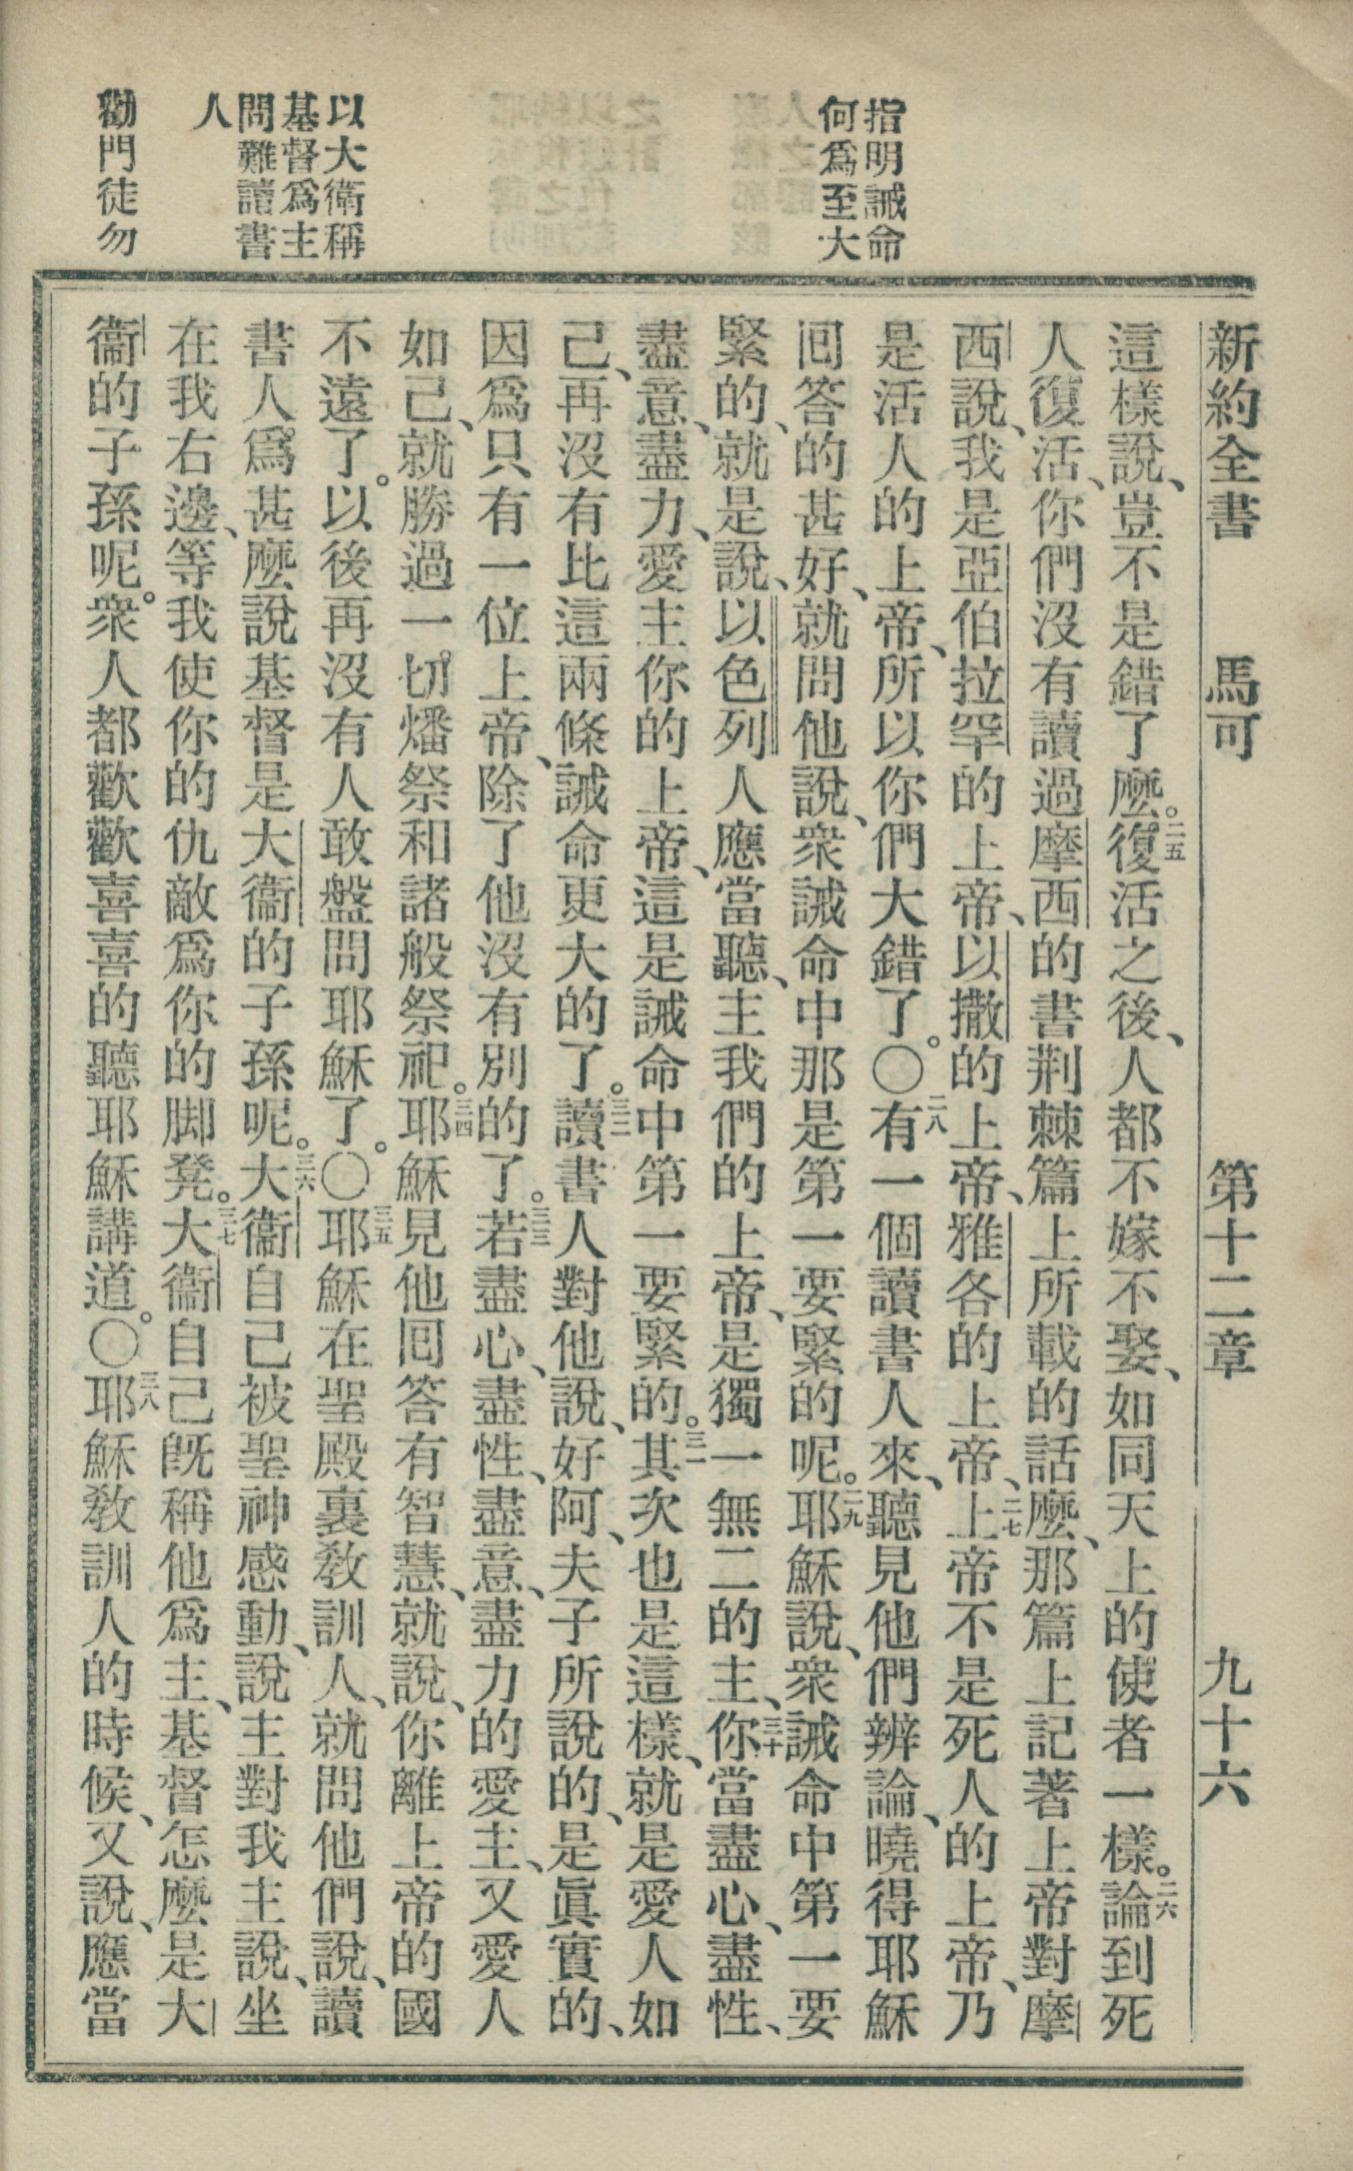 新約全書　馬可　第十二章　九十六
指明誡命
何爲至大
以大衛稱
基督爲主
問難讀書
人
勸門徒勿
這樣說、豈不是錯了麽。二五復活之後、人都不嫁不娶、如同天上的使者一樣。二六論到死
人復活、你們沒有讀過摩西的書荆棘篇上所載的話麽、那篇上記著上帝對摩
西說、我是亞伯拉罕的上帝、以撒的上帝、雅各的上帝、二七上帝不是死人的上帝、乃
是活人的上帝、所以你們大錯了。〇二八有一個讀書人來、聽見他們辨論、曉得耶穌
囘答的甚好、就問他說、衆誡命中那是第一要緊的呢。二九耶穌說、衆誡命中第一要
緊的、就是說、以色列人應當聽、主我們的上帝、是獨一無二的主、三十你當盡心、盡性、
盡意、盡力、愛主你的上帝、這是誡命中第一要緊的。三一其次也是這樣、就是愛人如
己、再沒有比這兩條誡命更大的了。三二讀書人對他說、好阿、夫子所說的、是眞實的、
因爲只有一位上帝、除了他沒有別的了。三三若盡心、盡性、盡意、盡力的愛主、又愛人
如己、就勝過一切燔祭和諸般祭祀。三四耶穌見他囘答有智慧、就說、你離上帝的國
不遠了。以後再沒有人敢盤問耶穌了。〇三五耶穌在聖殿裏敎訓人、就問他們說、讀
書人爲甚麽說基督是大衛的子孫呢。三六大衛自己被聖神感動、說、主對我主說、坐
在我右邊、等我使你的仇敵爲你的脚凳。三七大衛自己旣稱他爲主、基督怎麽是大
衛的子孫呢。衆人都歡歡喜喜的聽耶穌講道。〇三八耶穌敎訓人的時候、又說、應當